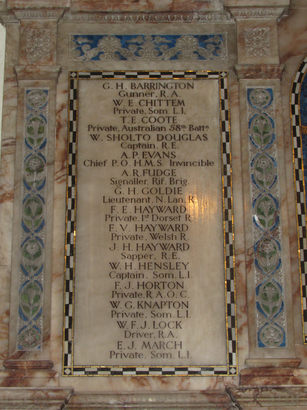 G. H. BARRINGTON
Gunner, R.A.
W. E. CHITTEM
Private, Som. L.I.
T. E. COOTE
Private, Australian 58th Battn
W. SHOLTO DOUGLAS
Captain, R.E.
A. P. EVANS
Chief P.O. H.M.S. Invincible
A. R. FUDGE
Signaller, Rif. Brig.
G. H. GOLDIE
Lieutenant, N. Lan. R.
F. E. HAYWARD
Private, 1st Dorset R.
F. V. HAYWARD
Private, Welsh R.
J. H. HAYWARD
Sapper, R.E.
W. H. HENSLEY
Captain, Som. L.I.
F. J. HORTON
Private, R.A.O.C.
W. G. KNAPTON
Private, Som. L.I.
W. F. J. LOCK
Driver, R.A.
E. J. MARCH
Private, Som. L.I.